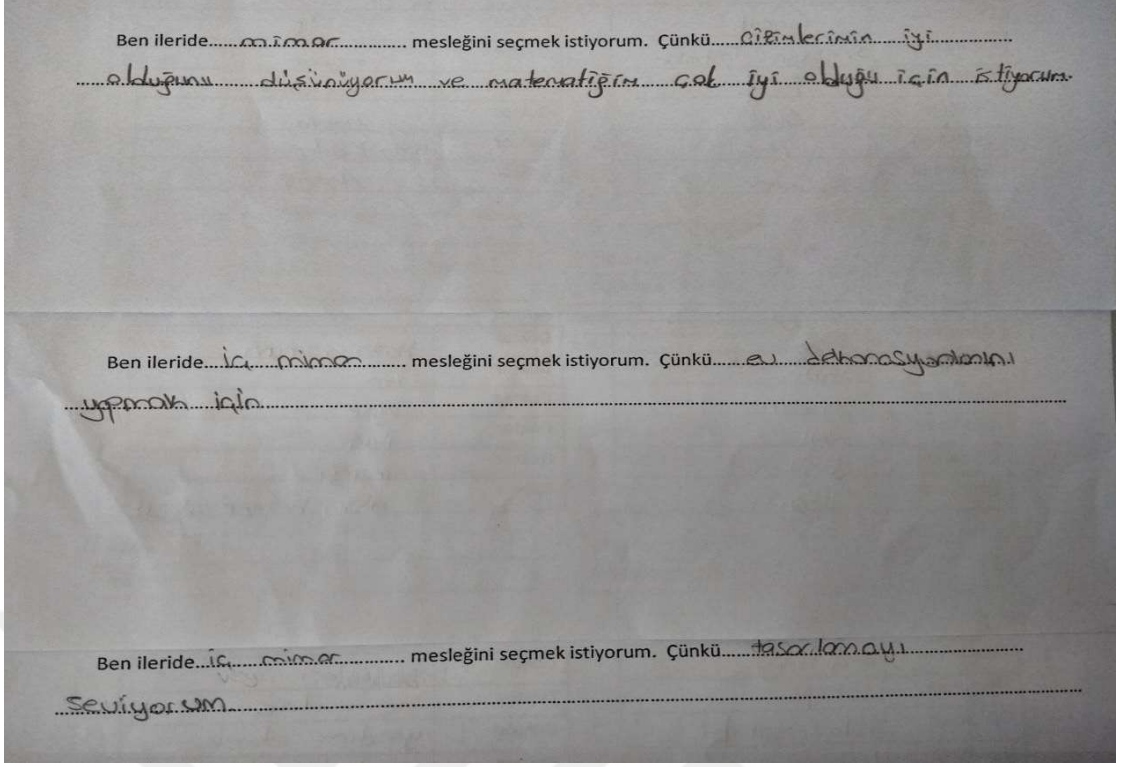 Ben ileride......mimar.............. mesleğini seçmek istiyorum. Çünkü.....çizimlerimin......iyi...............
.....olduğunu........düşünüyorum....ve....matematiğim.....çok....iyi...olduğu için....istiyorum.
Ben ileride....iç.....mimar......... mesleğini seçmek istiyorum. Çünkü.......ev.....dekorasyonlarını
....yapmak....için...............
Ben ileride...iç.....mimar............. mesleğini seçmek istiyorum. Çünkü......tasarlamayı.....................
..seviyorum...............